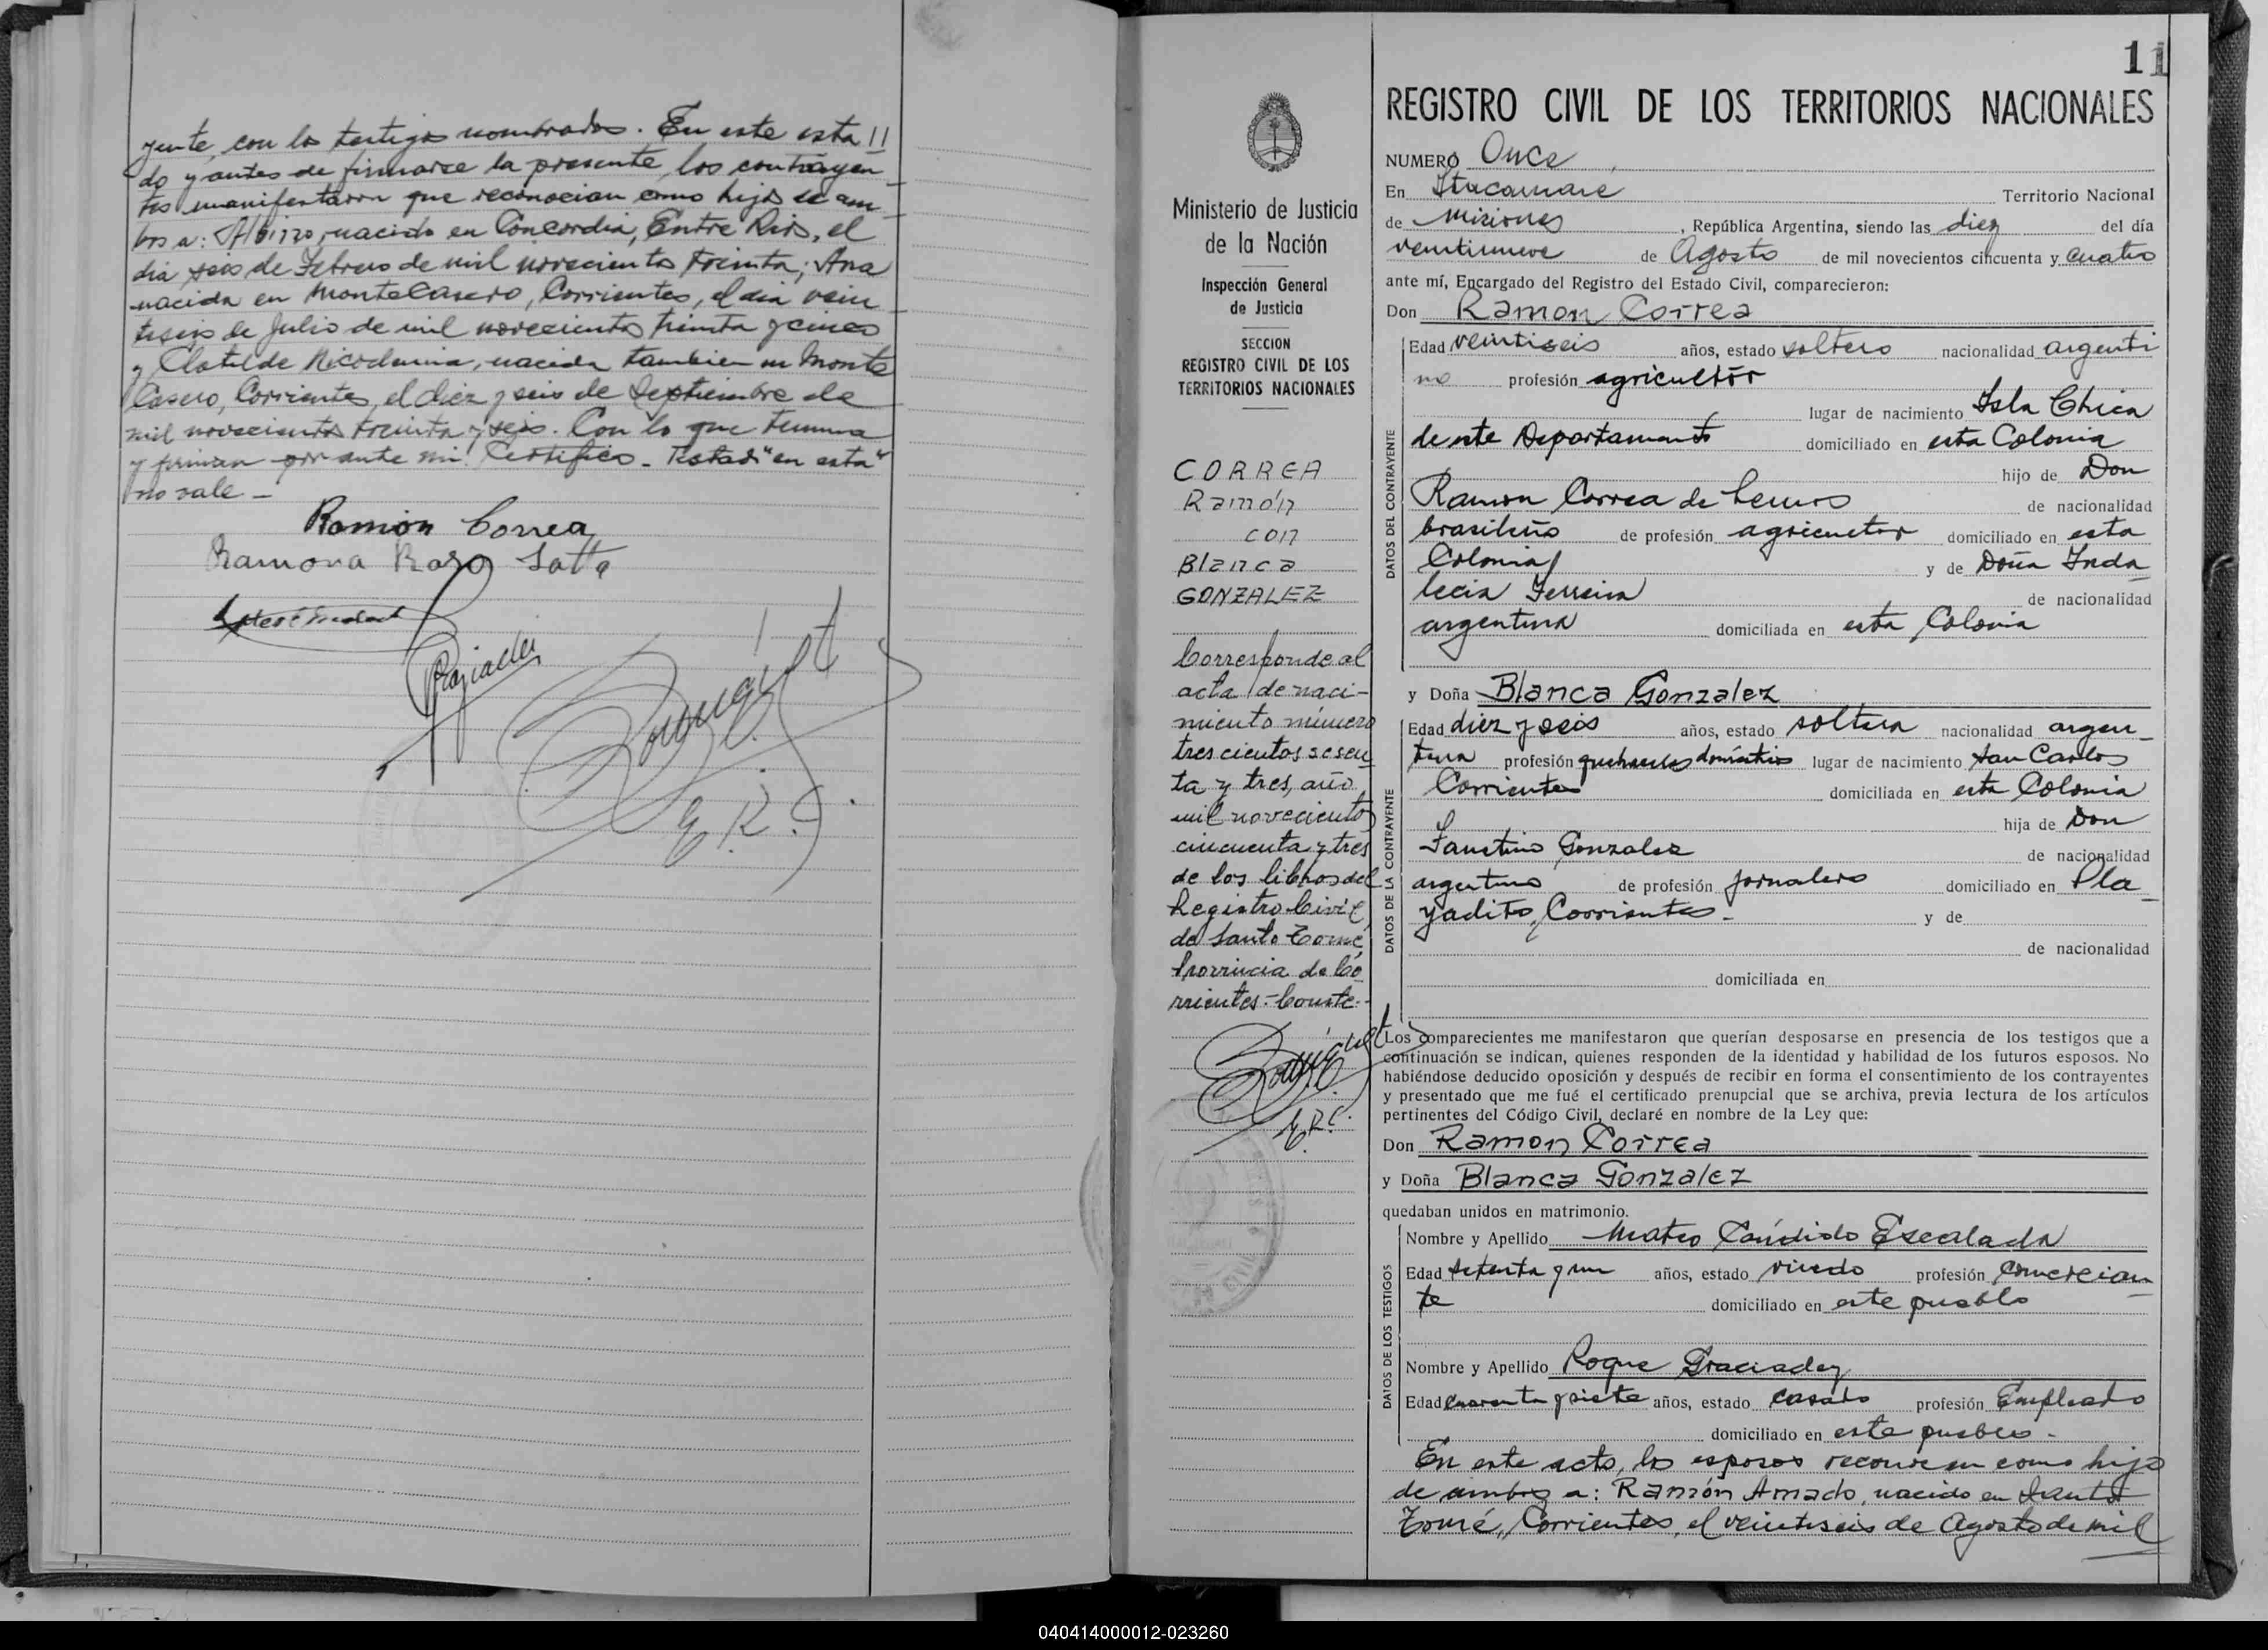 gente, con los testigos nombrados. En este esta
do y antes de firmarse la presente, los contrayen
tes manifestaron que reconocian como hijos de am
bos a: Albizzo, nacido en Concordia, Entre Rios, el
dia seis de Febrero de mil novecientos treinta; Ana
nacida en Monte Casero, Corrientes, el dia vein
tiseis de Julio de mil novecientos treinta y cinco
y Clotilde Nicodemia, nacida tambien en Monte
Casero, Corrientes, el diez y seis de Septiembre de
mil novecientos treinta y seis. Con lo que termina
y firman por ante mi. Certifico - Testado "en esta"
no vale -
Ramón Correa
Ramona Satto
E.R.C.
11
REGISTRO CIVIL DE LOS TERRITORIOS NACIONALES
NUMERO Once
En Itacaruaré Territorio Nacional
de Misiones, República Argentina, siendo las diez del día
veintinueve de Agosto de mil novecientos cincuenta y cuatro
ante mí, Encargado del Registro del Estado Civil, comparecieron:
Don Ramon Correa
Edad veintiseis años, estado soltero nacionalidad argenti
no profesión agricultor
lugar de nacimiento Isla Chica
de este Departamento domiciliado en esta Colonia
hijo de Don
Ramon Correa de Lemos de nacionalidad
brasileño de profesión agricultor domiciliado en esta
Colonia y de Doña Inda
lecia Ferreira de nacionalidad
argentina domiciliada en esta Colonia
DATOS DEL CONTRAYENTE
y Doña Blanca Gonzalez
Edad diez y seis años, estado soltera nacionalidad argen
tina profesión quehaceres domésticos lugar de nacimiento San Carlos
Corrientes domiciliada en esta Colonia
hija de Don
Faustino Gonzalez de nacionalidad
argentino de profesión jornalero domiciliado en Pla
yadito, Corrientes.- y de
de nacionalidad
domiciliada en
DATOS DE LA CONTRAYENTE
Los comparecientes me manifestaron que querían desposarse en presencia de los testigos que a
continuación se indican, quienes responden de la identidad y habilidad de los futuros esposos. No
habiéndose deducido oposición y después de recibir en forma el consentimiento de los contrayentes
y presentado que me fué el certificado prenupcial que se archiva, previa lectura de los artículos
pertinentes del Código Civil, declaré en nombre de la Ley que:
Don Ramon Correa
y Doña Blanca Gonzalez
quedaban unidos en matrimonio.
Nombre y Apellido Mateo Cándido Escalada
Edad setenta y un años, estado viudo profesión comercian
te domiciliado en este pueblo
Nombre y Apellido Roque Graciadey
Edad cuarenta y siete años, estado casado profesión Empleado
domiciliado en este pueblo -
DATOS DE LOS TESTIGOS
En este acto, los esposos reconocen como hijo
de ambos a: Ramón Amado, nacido en Santo
Tomé, Corrientes, el veintiseis de Agosto de mil
Ministerio de Justicia
de la Nación
Inspección General
de Justicia
SECCION
REGISTRO CIVIL DE LOS
TERRITORIOS NACIONALES
CORREA
Ramón
con
Blanca
GONZALEZ
Corresponde al
acta de naci-
miento número
trescientos sesen
ta y tres, año
mil novecientos
cincuenta y tres
de los libros del
Registro Civil
de Santo Tomé,
Provincia de Co
rrientes.- Conste.-
E.R.C.
040414000012-023260